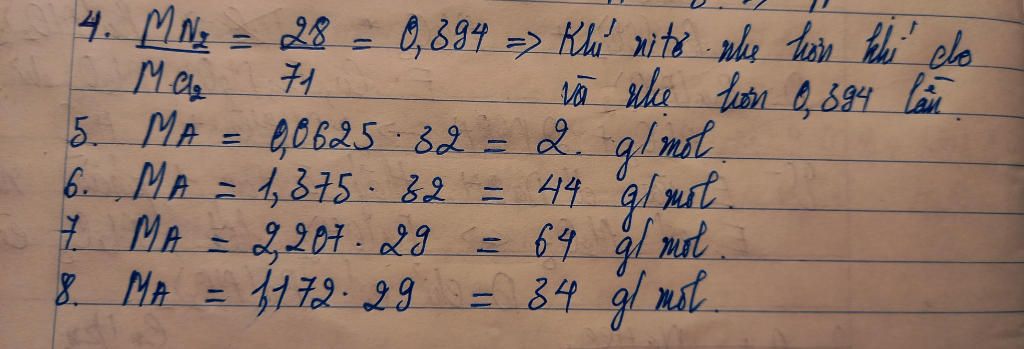 4. MN₂ = 28 = 0,394 => Khí nitơ nhẹ hơn khí clo
MCl₂ 71 và nhẹ hơn 0,394 lần.
5. MA = 0,0625 . 32 = 2. g/mol.
6. MA = 1,375 . 32 = 44 g/mol.
7. MA = 2,207 . 29 = 64 g/mol.
8. MA = 1,172 . 29 = 34 g/mol.